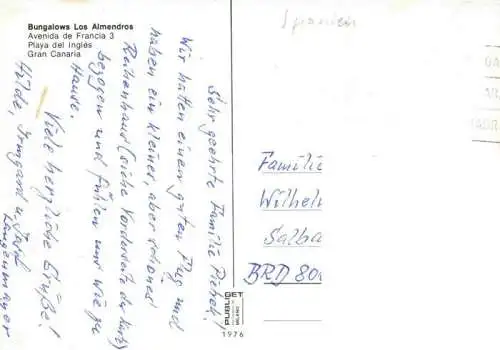 Bungalows Los Almendros
Avenida de Francia 3
Playa del Inglés
Gran Canaria
Sehr geehrte Familie
Wir hatten einen guten Flug und
haben ein kleines, aber schönes
Reihenhaus (siehe Vorderseite der Karte)
bezogen und fühlen uns wie zu
Hause.
Viele herzliche Grüße!
Hilde, Irmgard u.
Langenmayer
Spanien
Familie
Wilhelm
Salba
BRD 80
1976